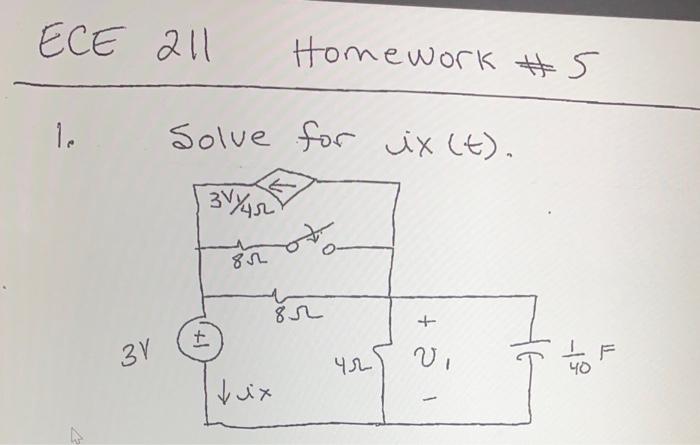 ECE 211 Homework # 5
1. Solve for ix(t).
3V1/4Ω
8Ω
8Ω
3V
±
↓ ix
4Ω
+
V1
-
1/40 F